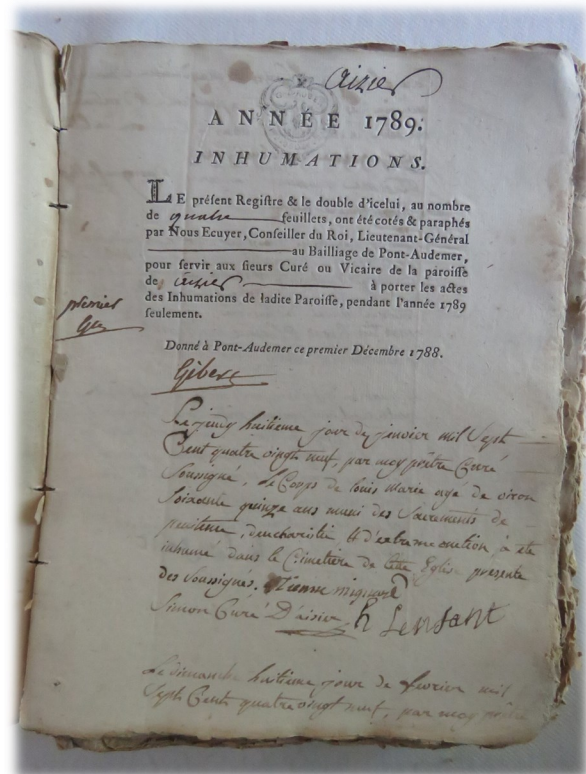 Aizier
ANNÉE 1789.
INHUMATIONS.
LE présent Registre & le double d'icelui, au nombre
de quatre feuillets, ont été cotés & paraphés
par Nous Ecuyer, Conseiller du Roi, Lieutenant-Général
au Bailliage de Pont-Audemer,
pour servir aux sieurs Curé ou Vicaire de la paroisse
de aizier à porter les actes
des Inhumations de ladite Paroisse, pendant l'année 1789
seulement.
premier
Donné à Pont-Audemer ce premier Décembre 1788.
Le jeudy huitieme jour de janvier mil Sept
Cent quatre vingt neuf, par moy prêtre Curé
Soussigné, le Corps de louis Marie agé de viron
Soixante quinze ans muni des Sacrements de
penitence, deucharistie, et d'extreme onction, à eté
inhumé dans le Cimetiere de Cette Eglise presence
des Soussignés. Etienne mignard
Simon Curé D'aisier. h Lenfant
Le dimanche huitieme jour de fevrier mil
Sept Cent quatre vingt neuf, par moy prêtre